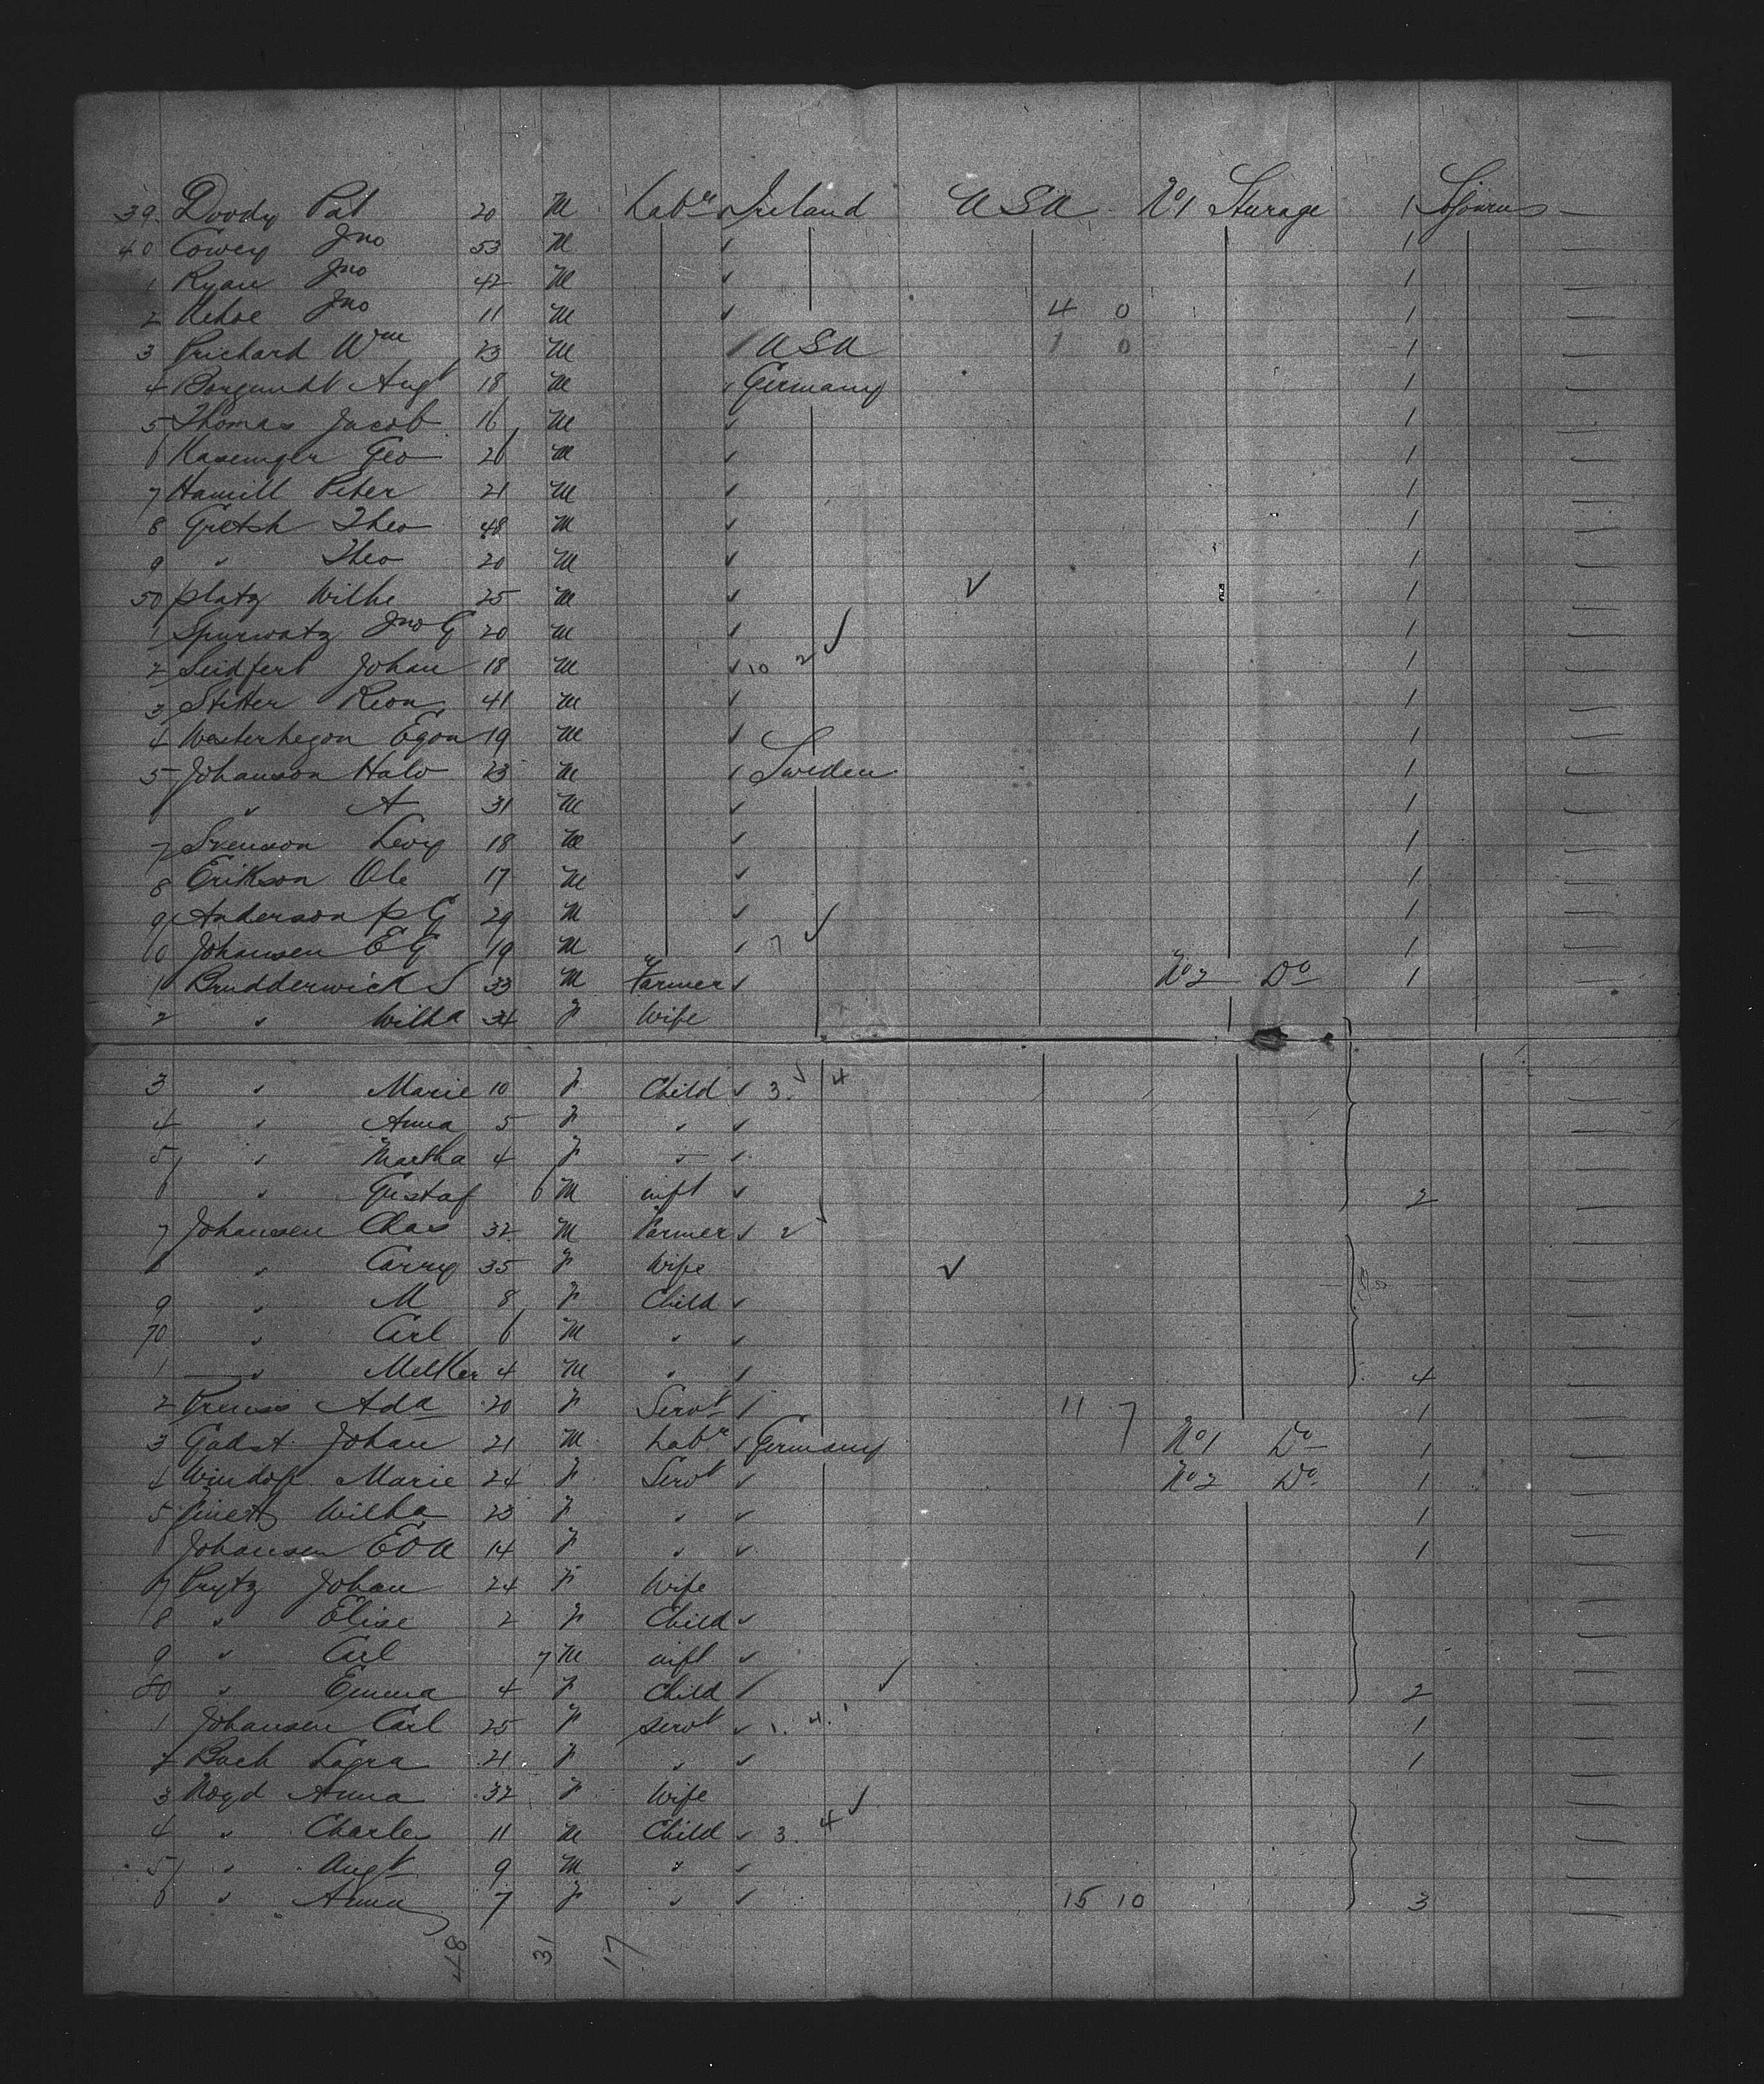 39 Doody Pat 20 M Labr Ireland USA No 1 Sturage 1 Sojourns —
40 Cowey Jno 53 M 1 —
1 Ryan Jno 42 M 1 —
2 Kehoe Jno 11 M 4 0 1 —
3 Prichard Wm 23 M USA 1 0 1 —
4 Borgundt Augt 18 M Germany 1 —
5 Thomas Jacob 16 M 1 —
6 Kasemger Geo 26 M 1 —
7 Hamill Peter 21 M 1 —
8 Gretsh Theo 48 M 1 —
9 " Theo 20 M 1 —
50 Platz Wilhe 25 M 1 —
1 Spurwatz Jno G 20 M 1 —
2 Seidfert Johan 18 M 10 2 1 —
3 Stetter Rion 41 M 1 —
4 Westerhegon Egon 19 M 1 —
5 Johanson Halv 23 M Sweden 1 —
6 " A 31 M 1 —
7 Svenson Levy 18 M 1 —
8 Erikson Ole 17 M 1 —
9 Anderson P G 29 M 1 —
60 Johansen E G 19 M 7 1 —
1 Brudderwick S 33 M Farmer No 2 Do 1 —
2 " Wilha 34 F Wife —
3 " Marie 10 F Child 3. 4 —
4 " Anna 5 F " —
5 " Martha 4 F " —
6 " Gustaf 6 M inft 2 —
7 Johansen Chas 32 M Farmer 2 —
8 " Carry 35 F Wife —
9 " M 8 F Child —
70 " Carl 6 M " —
1 " Melker 4 M " 4 —
2 Preuss Ada 20 F Servt 11 7 1 —
3 Gadst Johan 21 M Labr Germany No 1 Do 1 —
4 Windoff Marie 24 F Servt No 2 Do 1 —
5 Wilha 23 F " 1 —
6 Johansen Eva 14 F " 1 —
7 Prytz Johan 24 F Wife —
8 " Elise 2 F Child —
9 " Carl 7 M inft —
80 " Emma 4 F Child 2 —
1 Johansen Carl 25 F Servt 1. 4. 1 —
2 Bach Lagra 21 F " 1 —
3 Noyd Anna 32 F Wife —
4 " Charles 11 M Child 3. 4 —
5 " Augt 9 M " —
6 " Anna 7 F " 15 10 3 —
48 31 17